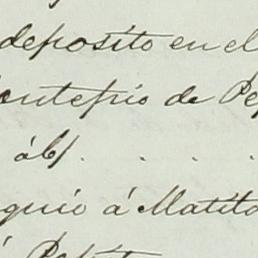 deposito en el
ontepio de Pe
á 6/. . . .
quio á Matito
á Pepito